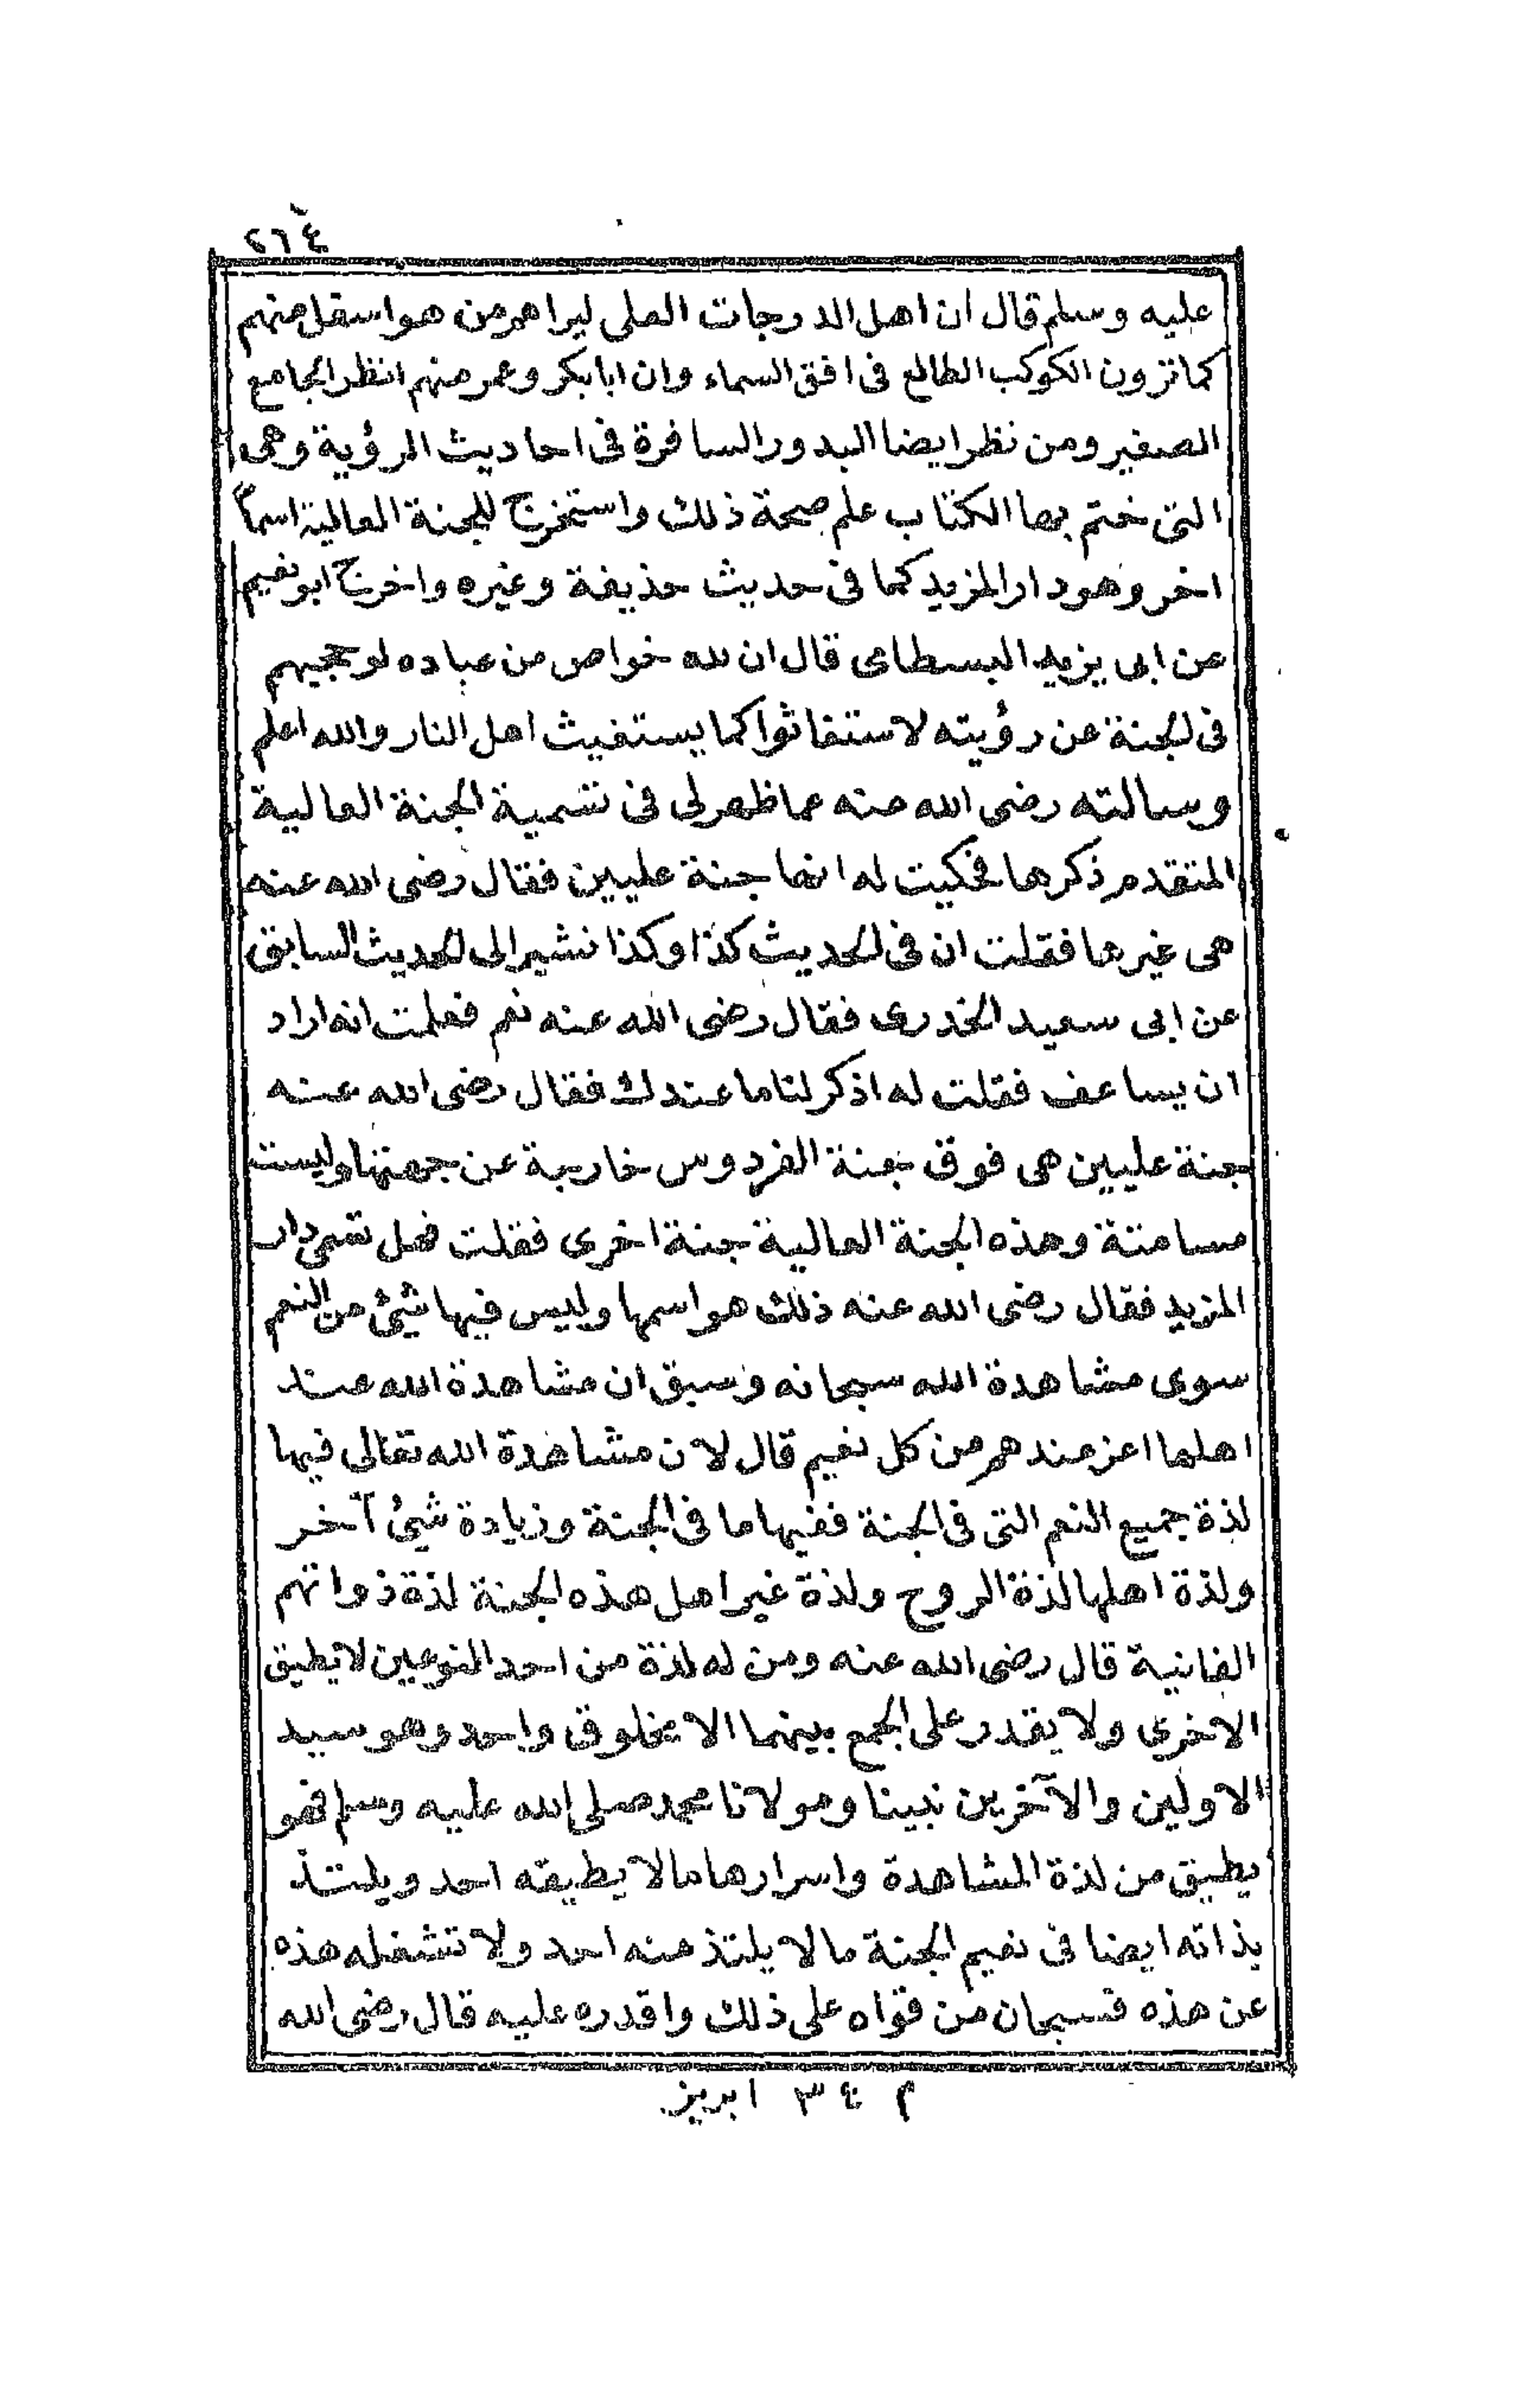 ٢٦٤
عليه وسلم قال ان اهل الدرجات العلى ليراهم من هو اسفل منهم
كما ترون الكوكب الطالع فى افق السماء وان ابا بكر وعمر منهم انظر الجامع
الصغير ومن نظر ايضا البدور السافرة فى احاديث الرؤية وهى
التى ختم بها الكتاب علم صحة ذلك واستخرج للجنة العالية اسماً
اخر وهو دار المزيد كما فى حديث حذيفة وغيره واخرج ابو نعيم
عن ابى يزيد البسطامى قال ان لله خواص من عباده لو حجبهم
فى الجنة عن رؤيته لاستغاثوا كما يستغيث اهل النار والله اعلم
وسالته رضى الله عنه عما ظهر لى فى تسمية الجنة العالية
المتقدم ذكرها فحكيت له انها جنة عليين فقال رضى الله عنه
هى غيرها فقلت ان فى الحديث كذا وكذا نشير الى الحديث السابق
عن ابى سعيد الخدرى فقال رضى الله عنه نعم فعلمت انه اراد
ان يساعف فقلت له اذكر لنا ما عندك فقال رضى الله عنه
جنة عليين هى فوق جنة الفردوس خارجة عن جهتها وليست
مسامتة وهذه الجنة العالية جنة اخرى فقلت فهل تسمى دار
المزيد فقال رضى الله عنه ذلك هو اسمها وليس فيها شئ من النعم
سوى مشاهدة الله سبحانه وسبق ان مشاهدة الله عند
اهلها اعز عندهم من كل نعيم قال لان مشاهدة الله تعالى فيها
لذة جميع النعم التى فى الجنة ففيها ما فى الجنة وزيادة شئ آخر
ولذة اهلها لذة الروح ولذة غير اهل هذه الجنة لذة ذواتهم
الفانية قال رضى الله عنه ومن له لذة من احد النوعين لا يطيق
الاخرى ولا يقدر على الجمع بينهما الا مخلوق واحد وهو سيد
الاولين والآخرين نبينا ومولانا محمد صلى الله عليه وسلم فهو
يطيق من لذة المشاهدة واسرارها ما لا يطيقه احد ويلتذ
بذاته ايضا فى نعيم الجنة ما لا يلتذ منه احد ولا تشغله هذه
عن هذه فسبحان من قواه على ذلك واقدره عليه قال رضى الله
م ٣٤ ابريز